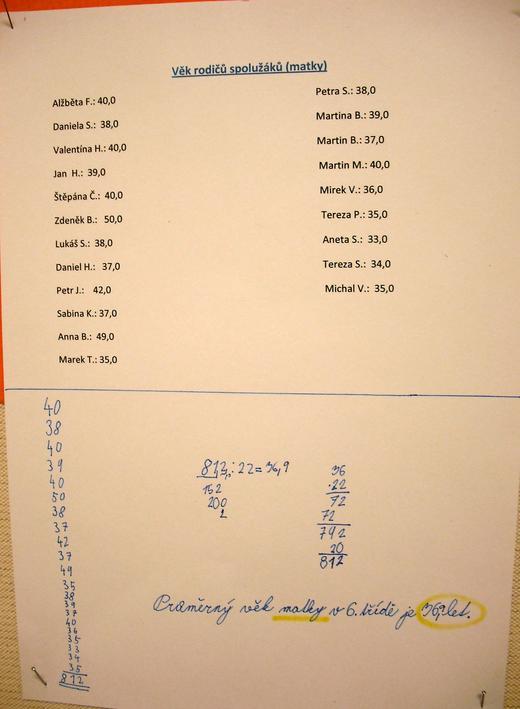 Věk rodičů spolužáků (matky)
Alžběta F.: 40,0
Daniela S.: 38,0
Valentína H.: 40,0
Jan H.: 39,0
Štěpána Č.: 40,0
Zdeněk B.: 50,0
Lukáš S.: 38,0
Daniel H.: 37,0
Petr J.: 42,0
Sabina K.: 37,0
Anna B.: 49,0
Marek T.: 35,0
Petra S.: 38,0
Martina B.: 39,0
Martin B.: 37,0
Martin M.: 40,0
Mirek V.: 36,0
Tereza P.: 35,0
Aneta S.: 33,0
Tereza S.: 34,0
Michal V.: 35,0
40
38
40
39
40
50
38
37
42
37
49
35
38
39
37
40
36
35
33
34
35
812
812:22=36,9
152
200
2
36
.22
72
72
792
20
812
Průměrný věk matky v 6. třídě je 36,9 let.